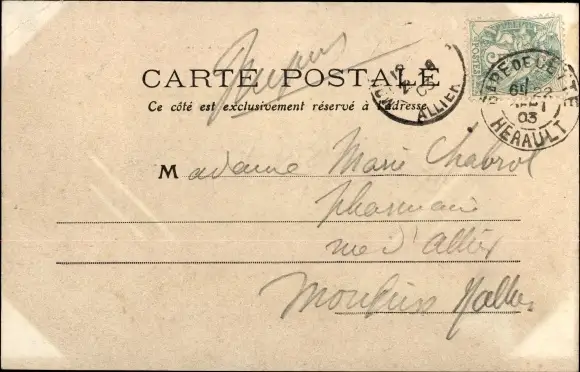 CARTE POSTALE
Ce côté est exclusivement réservé à l'adresse
GARE DE CETTE
03
HERAULT
ALLIER
03
Madame Marie Chabrol
pharmacie
rue d'Allier
Moulins Allier